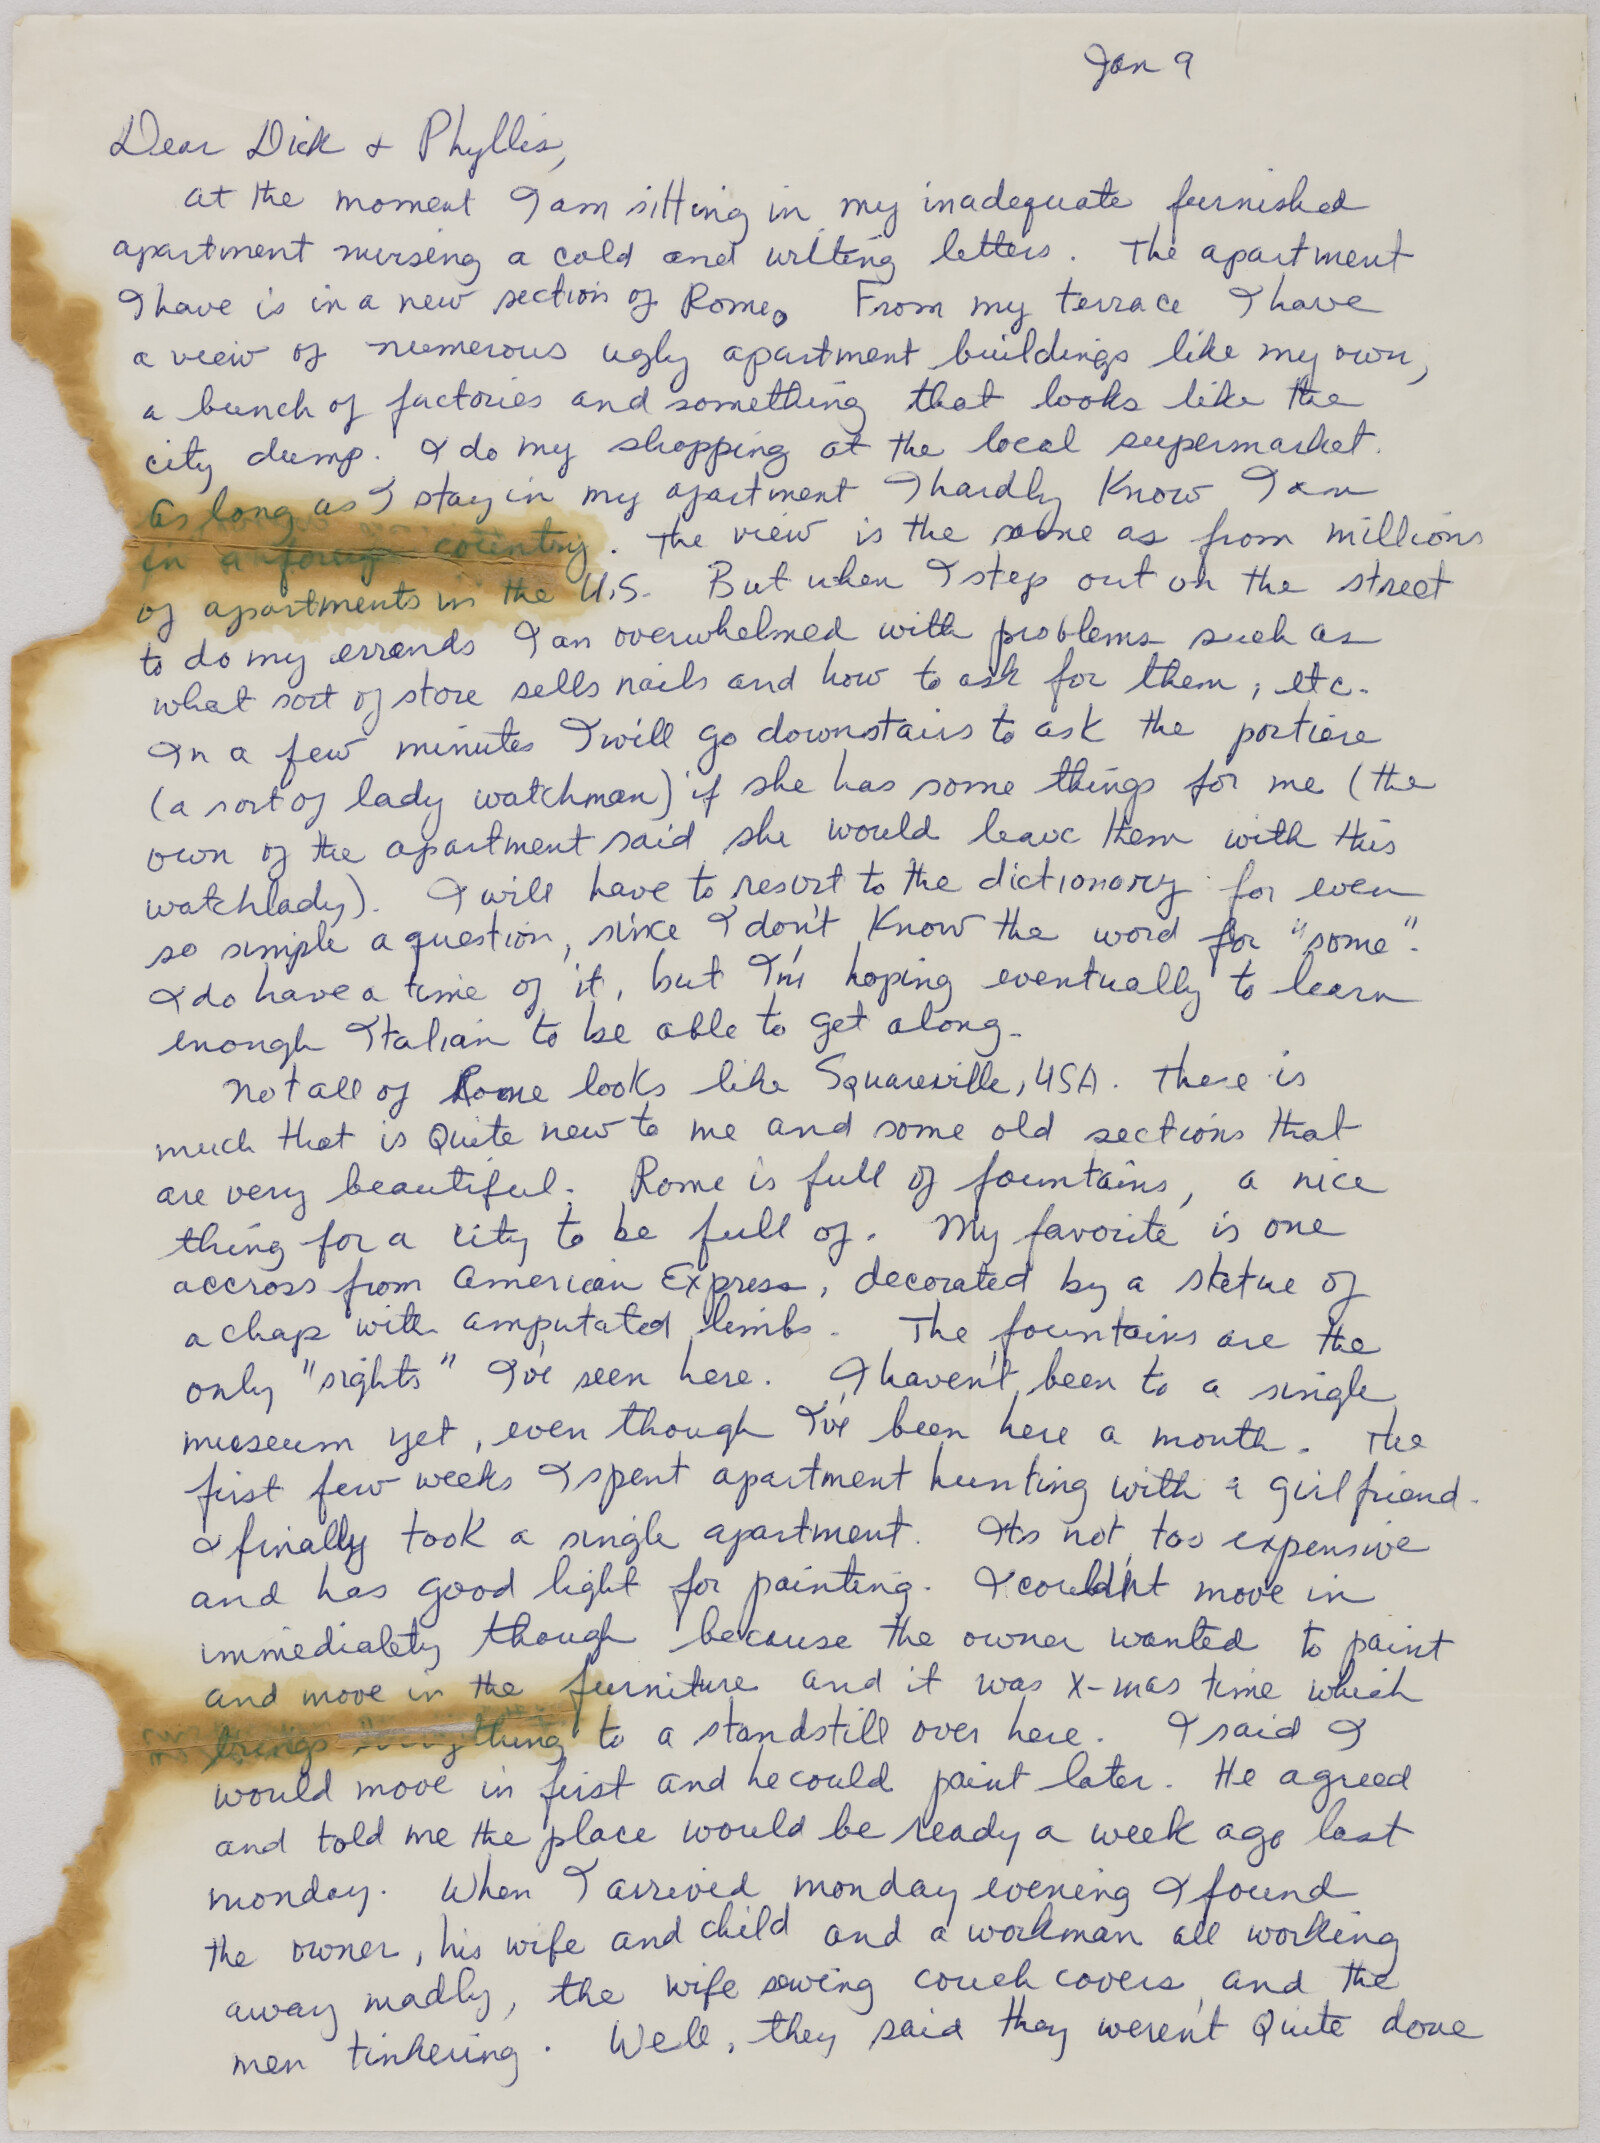 Jan 9
Dear Dick & Phyllis,
at the moment I am sitting in my inadequate furnished
apartment nursing a cold and writing letters. The apartment
I have is in a new section of Rome. From my terrace I have
a view of numerous ugly apartment buildings like my own,
a bunch of factories and something that looks like the
city dump. I do my shopping at the local supermarket.
As long as I stay in my apartment I hardly know I am
in a foreign country. The view is the same as from millions
of apartments in the U.S. But when I step out on the street
to do my errands I am overwhelmed with problems such as
what sort of store sells nails and how to ask for them, etc.
In a few minutes I will go downstairs to ask the portiere
(a sort of lady watchman) if she has some things for me (the
own of the apartment said she would leave them with this
watchlady). I will have to resort to the dictionary for even
so simple a question, since I don't know the word for "some".
I do have a time of it, but I'm hoping eventually to learn
enough Italian to be able to get along.
Not all of Rome looks like Squareville, USA. There is
much that is quite new to me and some old sections that
are very beautiful. Rome is full of fountains, a nice
thing for a city to be full of. My favorite is one
accross from American Express, decorated by a statue of
a chap with amputated limbs. The fountains are the
only "sights" I've seen here. I haven't been to a single
museum yet, even though I've been here a month. The
first few weeks I spent apartment hunting with a girl friend.
I finally took a single apartment. Its not too expensive
and has good light for painting. I couldn't move in
immediately though because the owner wanted to paint
and move in the furniture and it was X-mas time which
brings everything to a standstill over here. I said I
would move in first and he could paint later. He agreed
and told me the place would be ready a week ago last
monday. When I arrived monday evening I found
the owner, his wife and child and a workman all working
away madly, the wife sewing couch covers and the
men tinkering. Well, they said they weren't quite done